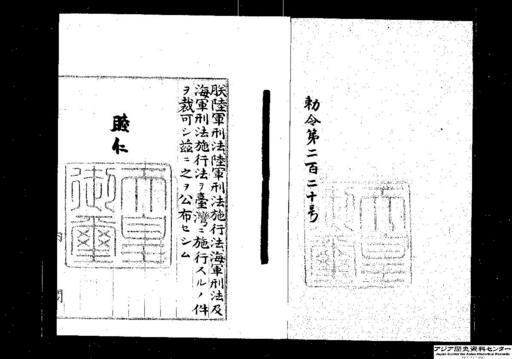 勅令第二百二十号
朕陸軍刑法陸軍刑法施行法海軍刑法及
海軍刑法施行法ヲ臺灣ニ施行スルノ件
ヲ裁可シ茲ニ之ヲ公布セシム
睦仁
天皇
御璽
アジア歴史資料センター
Japan Center for Asian Historical Records